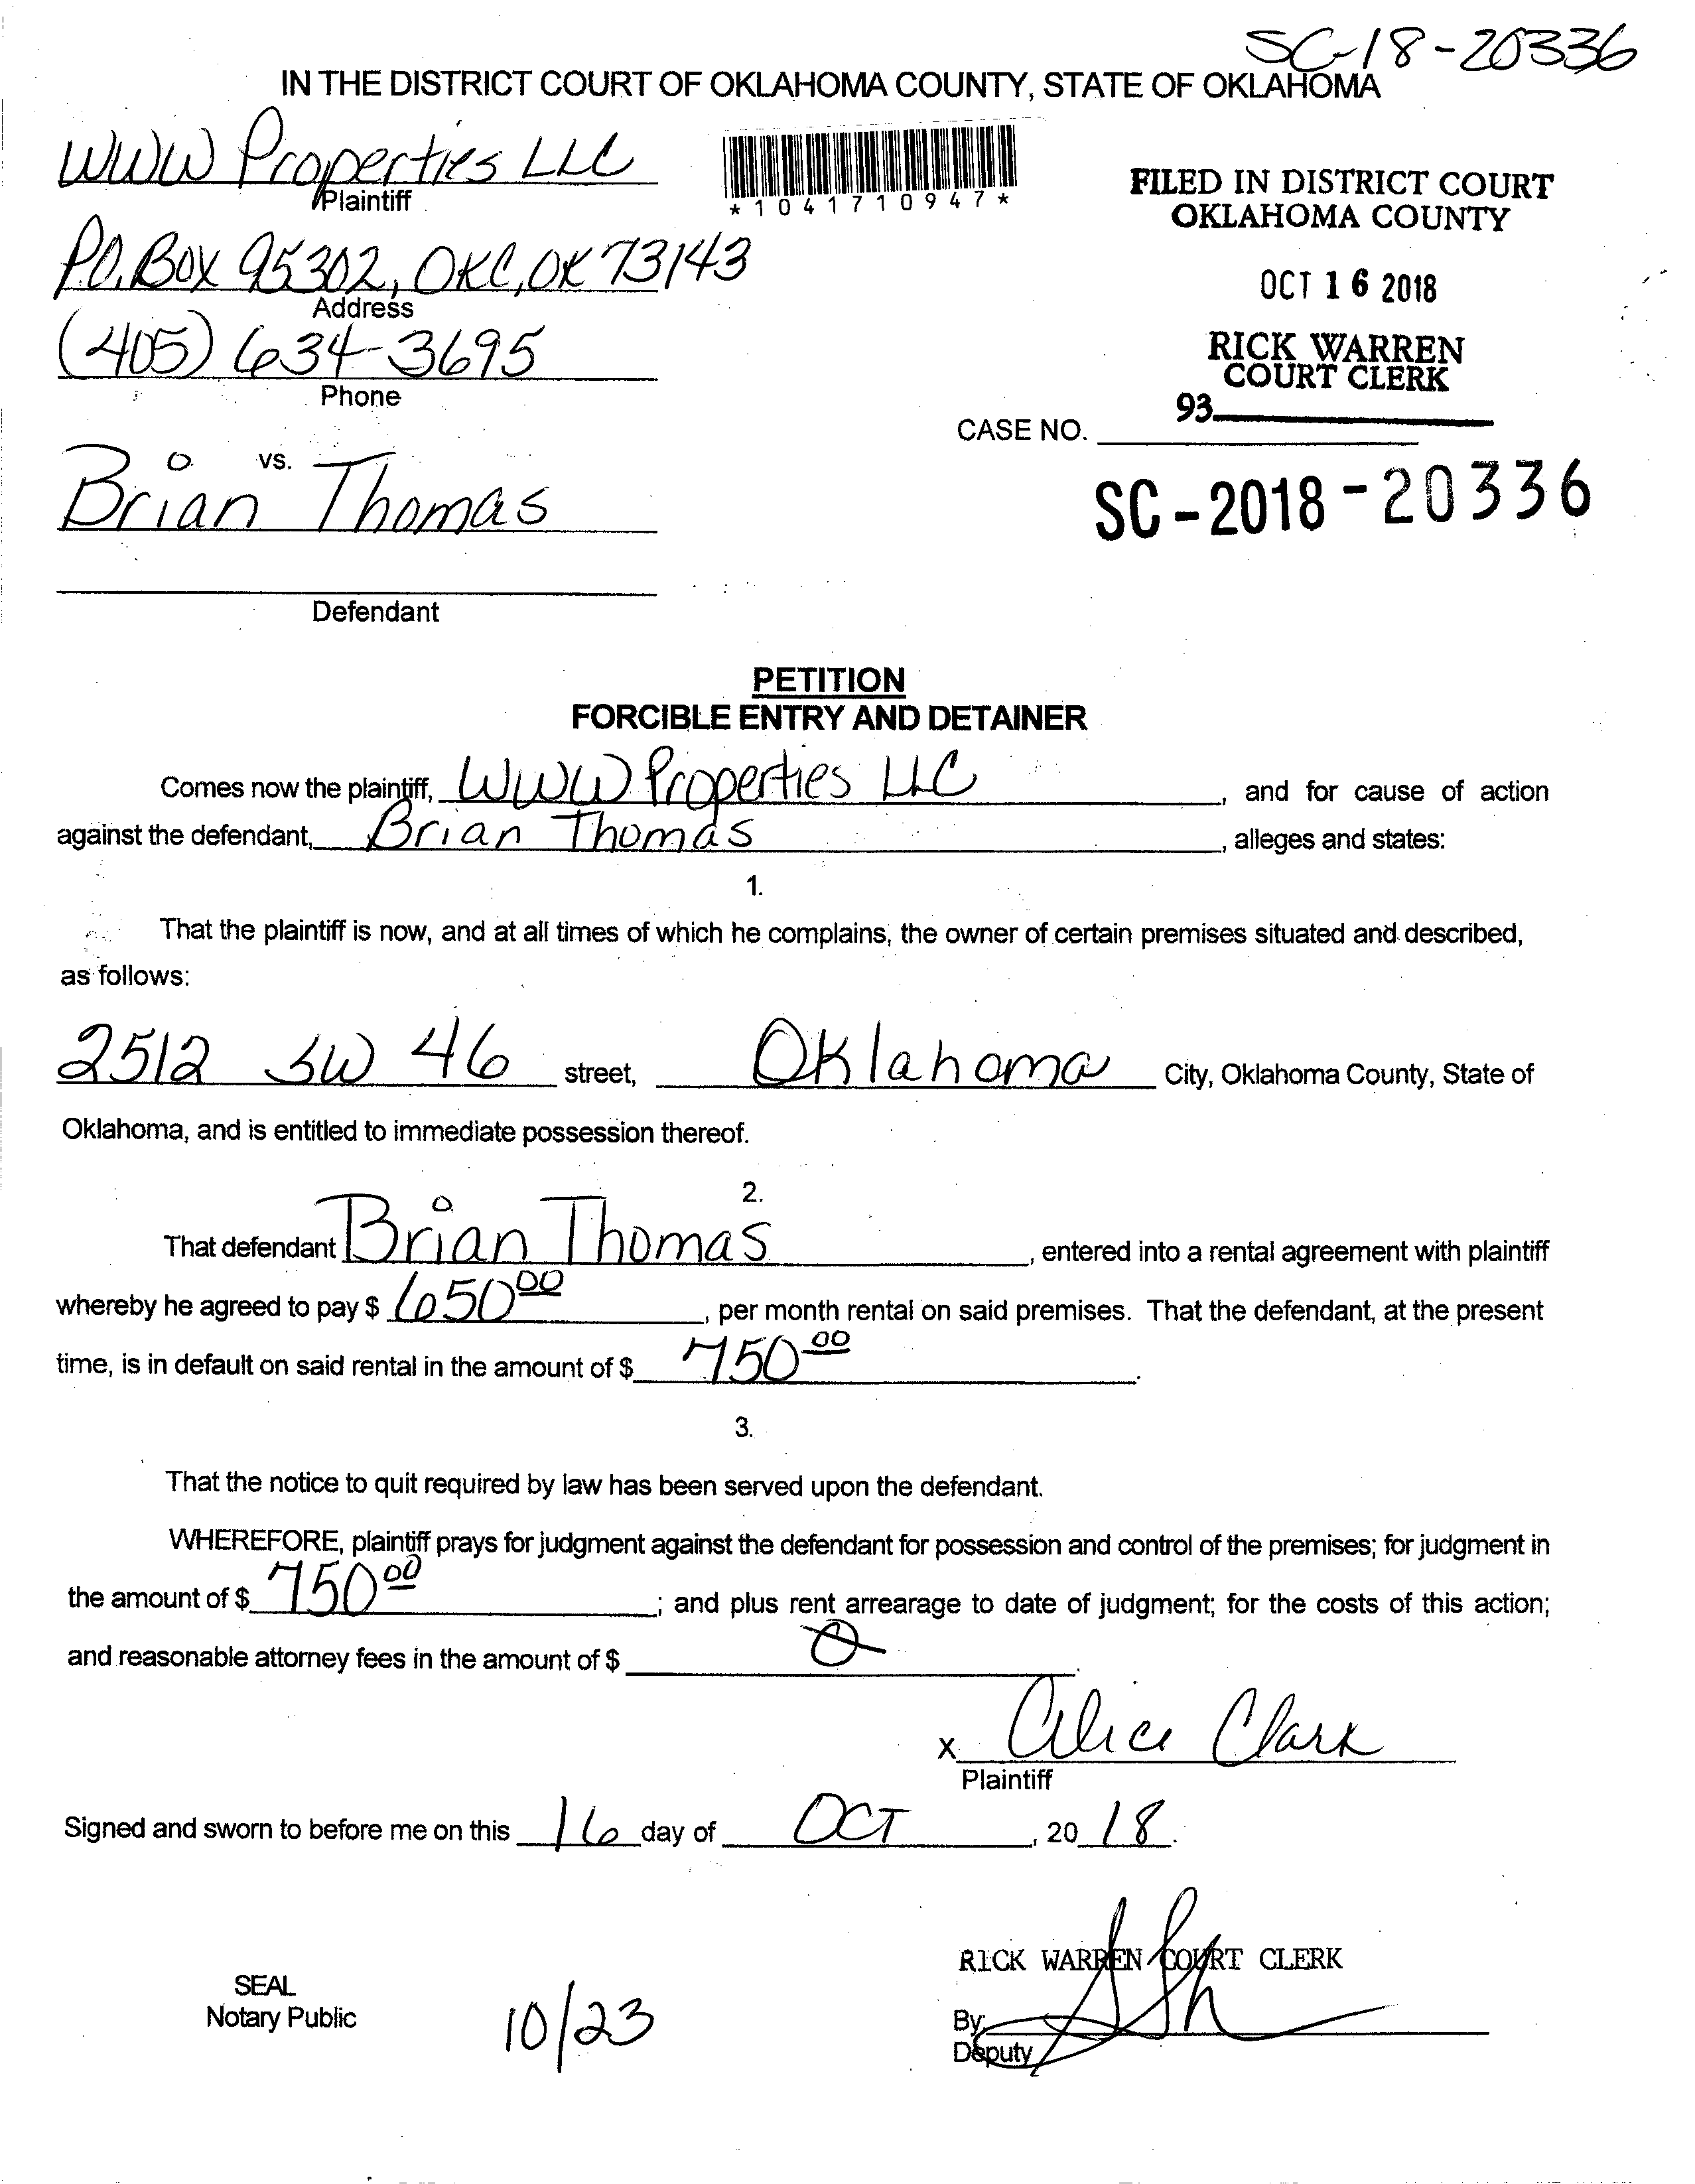 SC-18-20336
IN THE DISTRICT COURT OF OKLAHOMA COUNTY, STATE OF OKLAHOMA
WWW Properties LLC
Plaintiff
*1041710947*
FILED IN DISTRICT COURT
OKLAHOMA COUNTY
P.O. Box 95302, OKC, OK 73143
Address
OCT 16 2018
(405) 634-3695
Phone
RICK WARREN
COURT CLERK
93
CASE NO.
vs.
Brian Thomas
SC-2018-20336
Defendant
PETITION
FORCIBLE ENTRY AND DETAINER
Comes now the plaintiff, WWW Properties LLC, and for cause of action
against the defendant, Brian Thomas, alleges and states:
1.
That the plaintiff is now, and at all times of which he complains, the owner of certain premises situated and described,
as follows:
2512 SW 46 street, Oklahoma City, Oklahoma County, State of
Oklahoma, and is entitled to immediate possession thereof.
2.
That defendant Brian Thomas, entered into a rental agreement with plaintiff
whereby he agreed to pay $ 650 00, per month rental on said premises. That the defendant, at the present
time, is in default on said rental in the amount of $ 750 00.
3.
That the notice to quit required by law has been served upon the defendant.
WHEREFORE, plaintiff prays for judgment against the defendant for possession and control of the premises; for judgment in
the amount of $ 750 00; and plus rent arrearage to date of judgment; for the costs of this action;
and reasonable attorney fees in the amount of $ 0.
X Alice Clark
Plaintiff
Signed and sworn to before me on this 16 day of OCT, 2018.
RICK WARREN COURT CLERK
SEAL
Notary Public
10/23
By:
Deputy